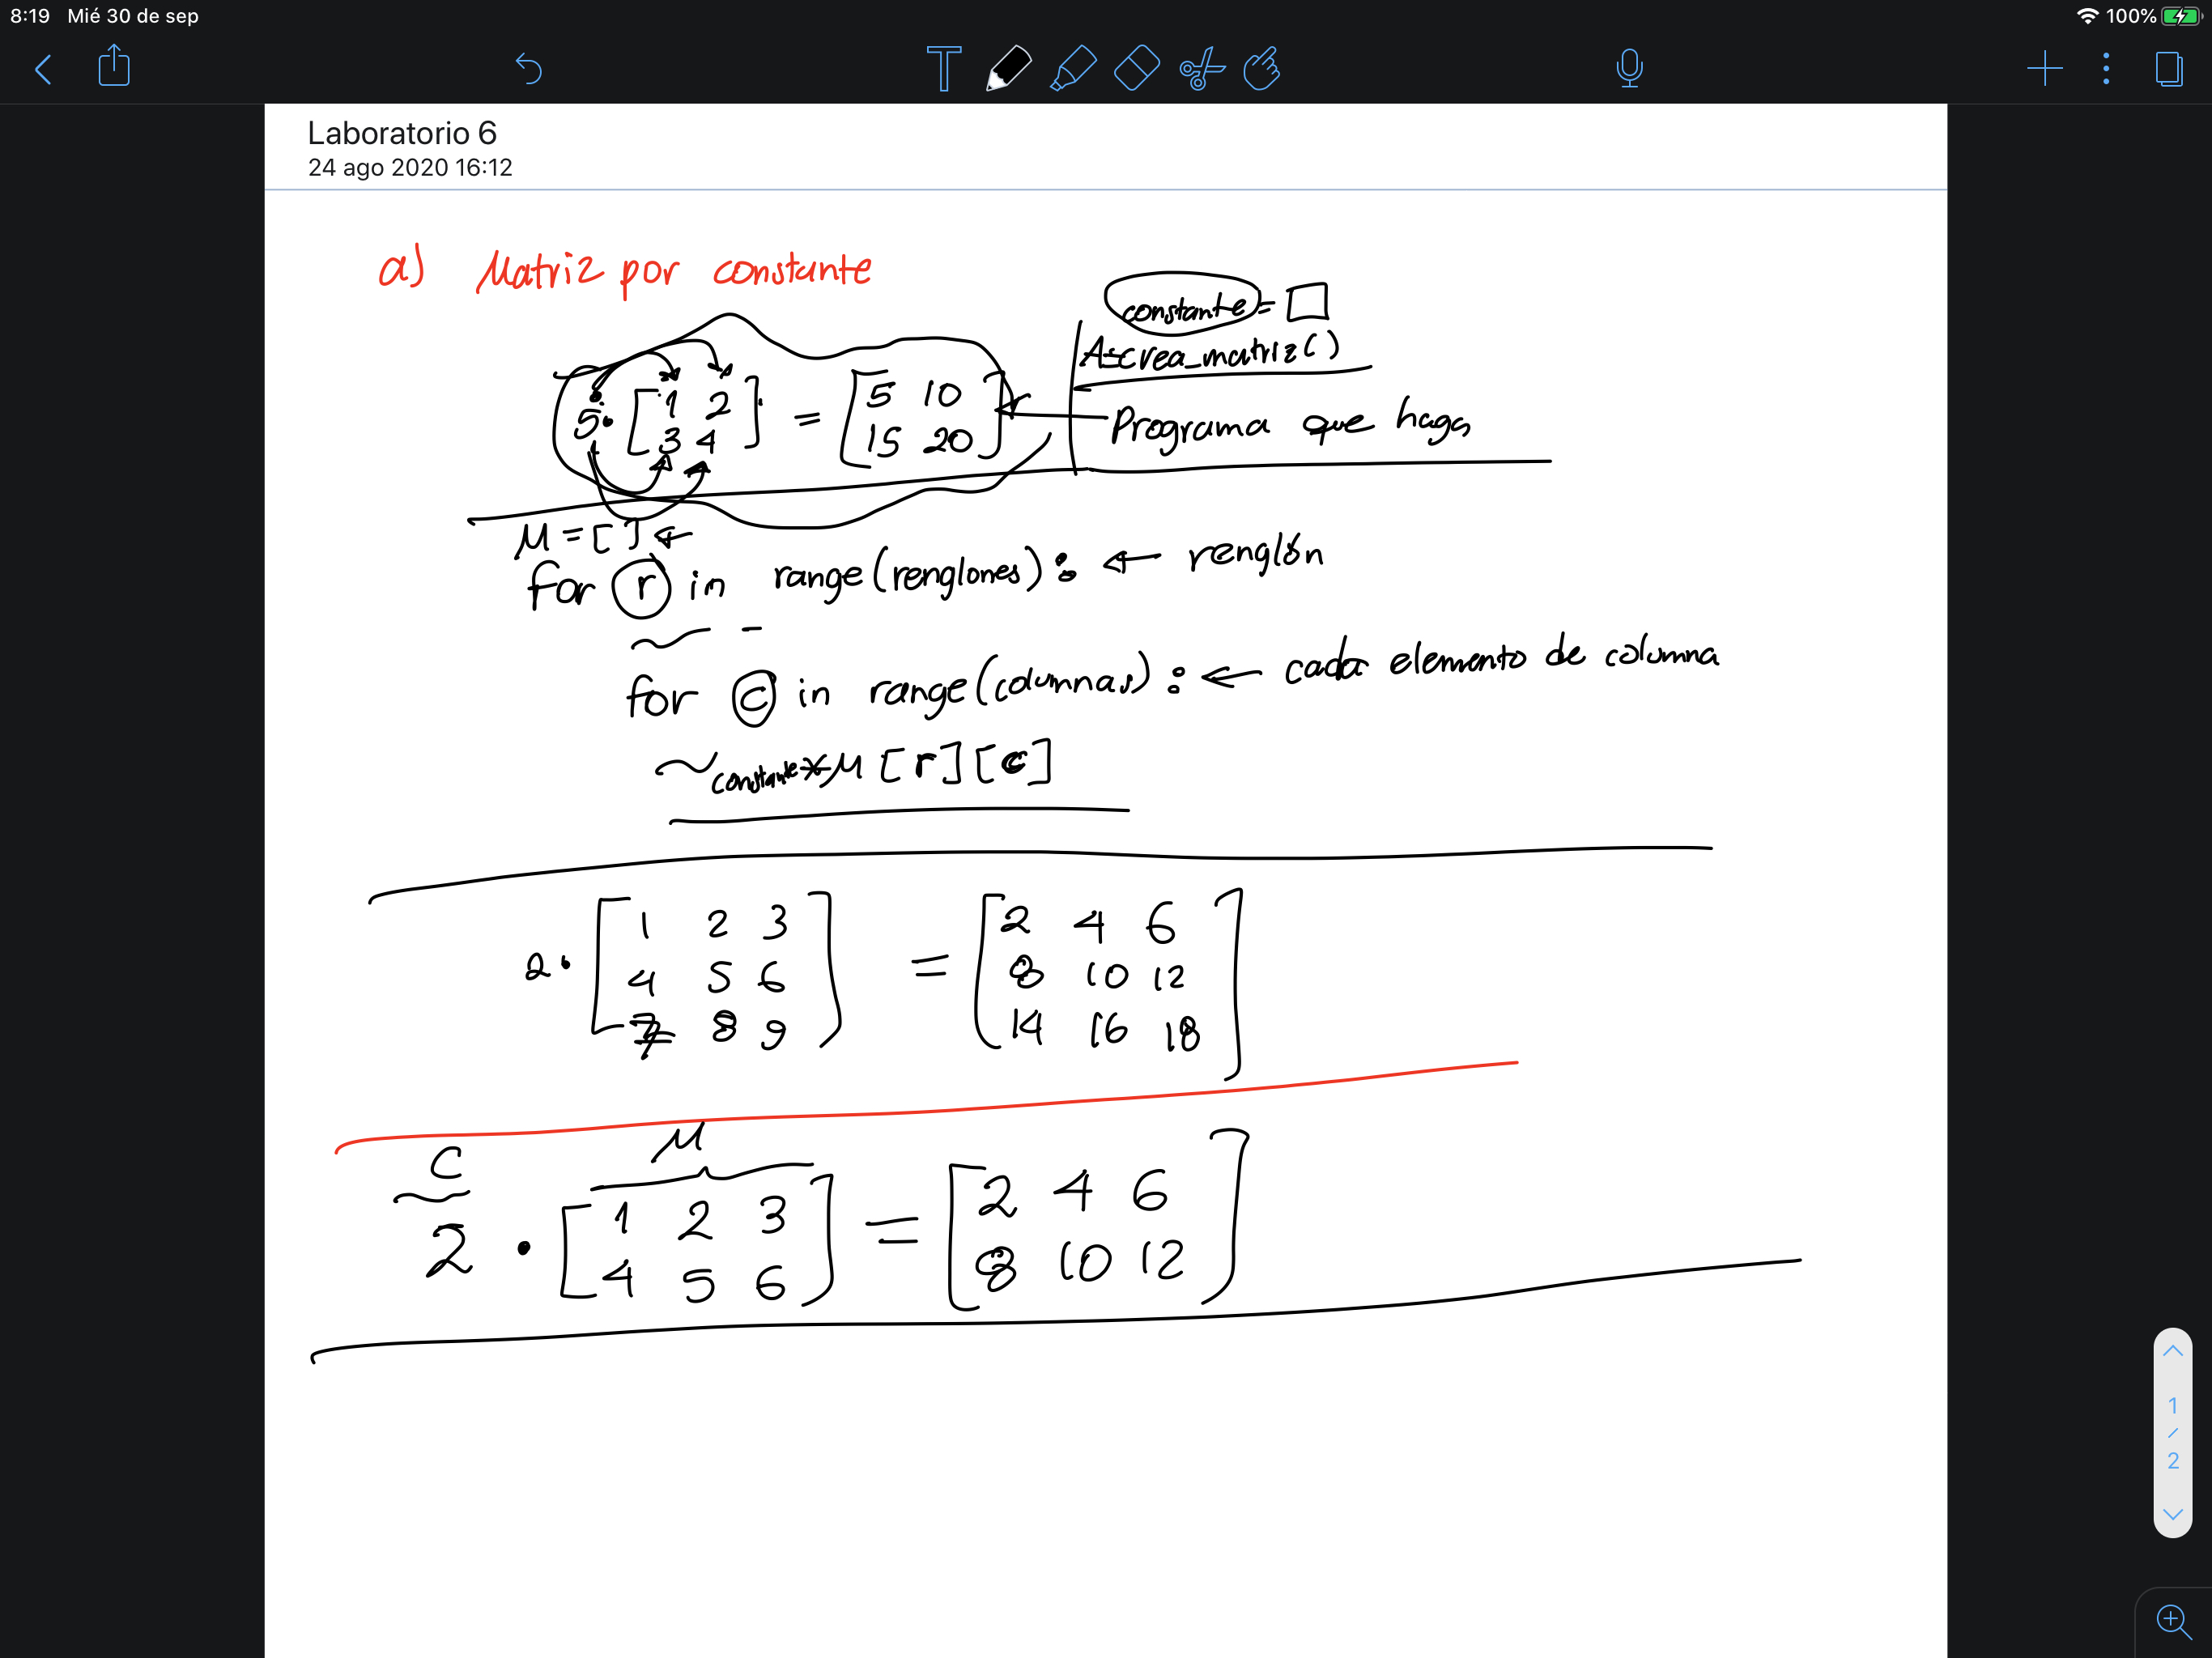 8:19 Mié 30 de sep 100%
T
Laboratorio 6
24 ago 2020 16:12
a) Matriz por constante
constante = □
A=crea_matriz()
5· [1 2 = [5 10
3 4] 15 20]
Programa que haga
M = [ ] ←
for r in range(renglones): ← renglón
for c in range(columnas): ← cada elemento de columna
constante*M[r][c]
2· [1 2 3 = [2 4 6
4 5 6 8 10 12
7 8 9] 14 16 18]
C M
2 · [1 2 3 = [2 4 6
4 5 6] 8 10 12]
1
/
2